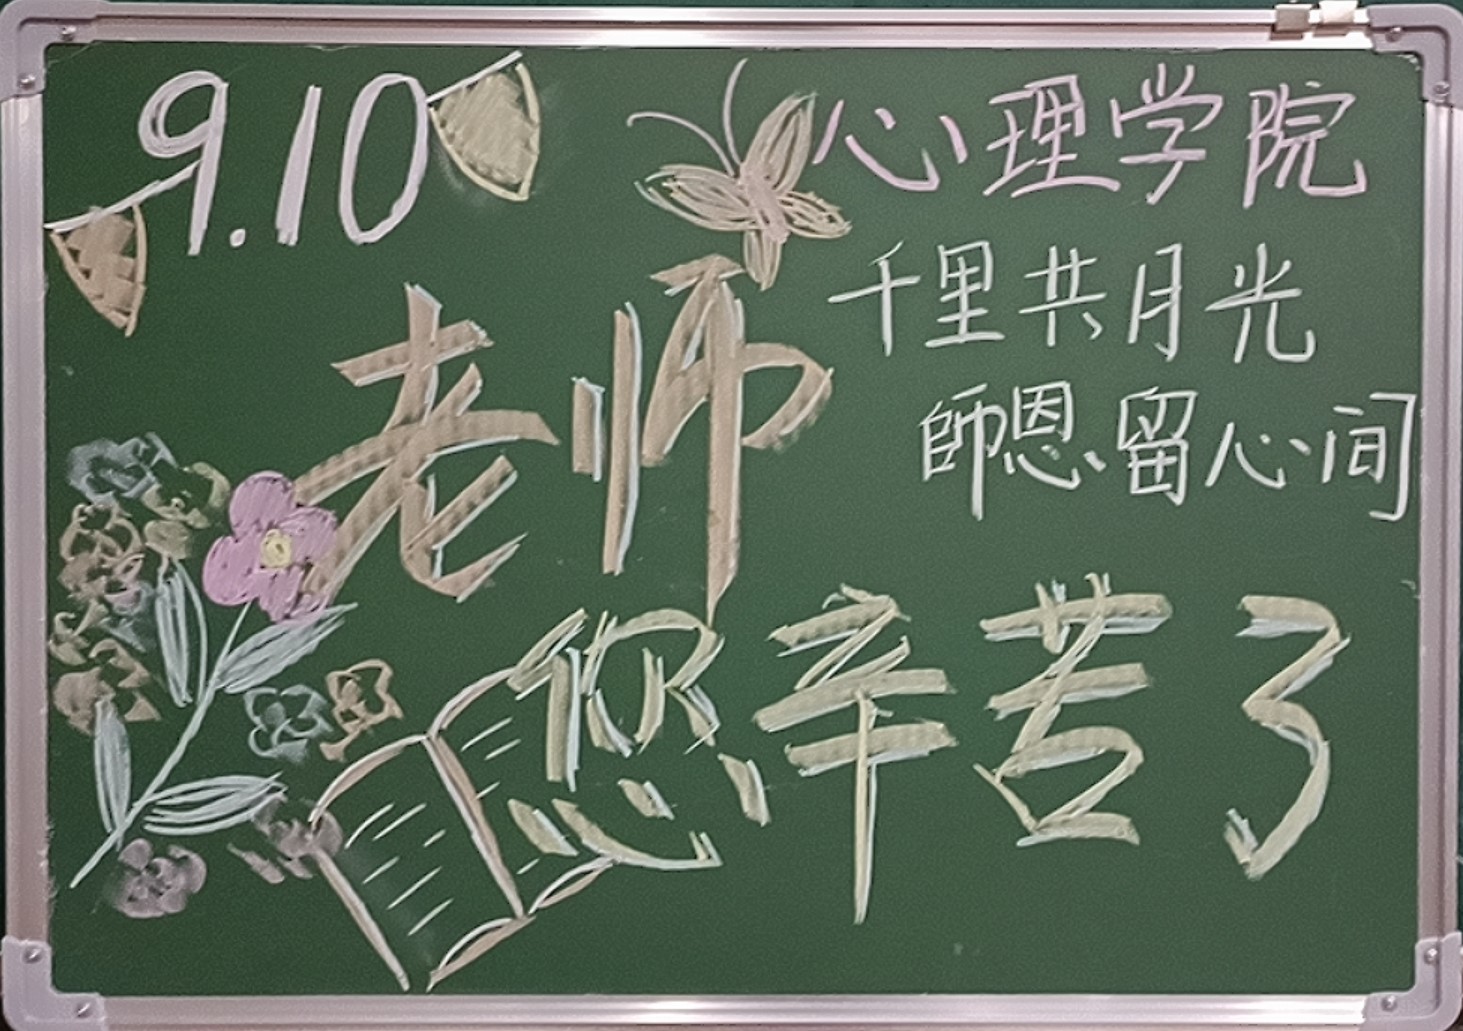 9.10
心理学院
千里共月光
師恩留心间
老师
您辛苦了